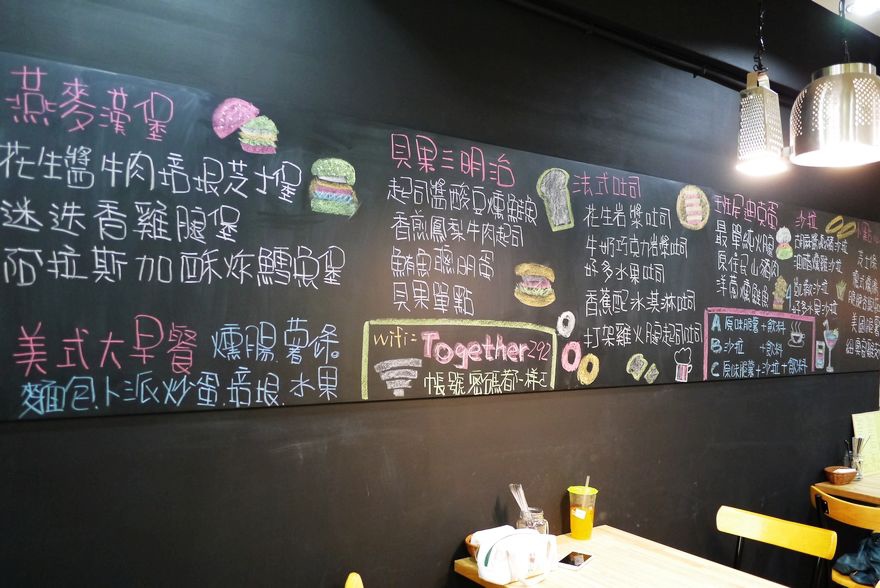 燕麥漢堡
花生醬牛肉培根芝士堡
迷迭香雞腿堡
阿拉斯加酥炸鱈魚堡
美式大早餐
燻腸.薯條.
麵包.卜派炒蛋.培根.水果
貝果三明治
起司醬酸豆燻鮭魚
香煎鳳梨牛肉起司
鮪魚聰明蛋
貝果單點
wifi = Together292
帳號密碼都一樣
法式吐司
花生岩漿吐司
牛奶巧克力岩漿吐司
好多水果吐司
香蕉配冰淇淋吐司
打架雞火腿起司吐司
班尼迪克蛋
最單純火腿
原住民山豬肉
洋蔥燻鮭魚
A 原味脆薯+飲料
B 沙拉 +飲料
C 原味脆薯+沙拉+飲料
沙拉
凱薩沙拉
好多水果沙拉